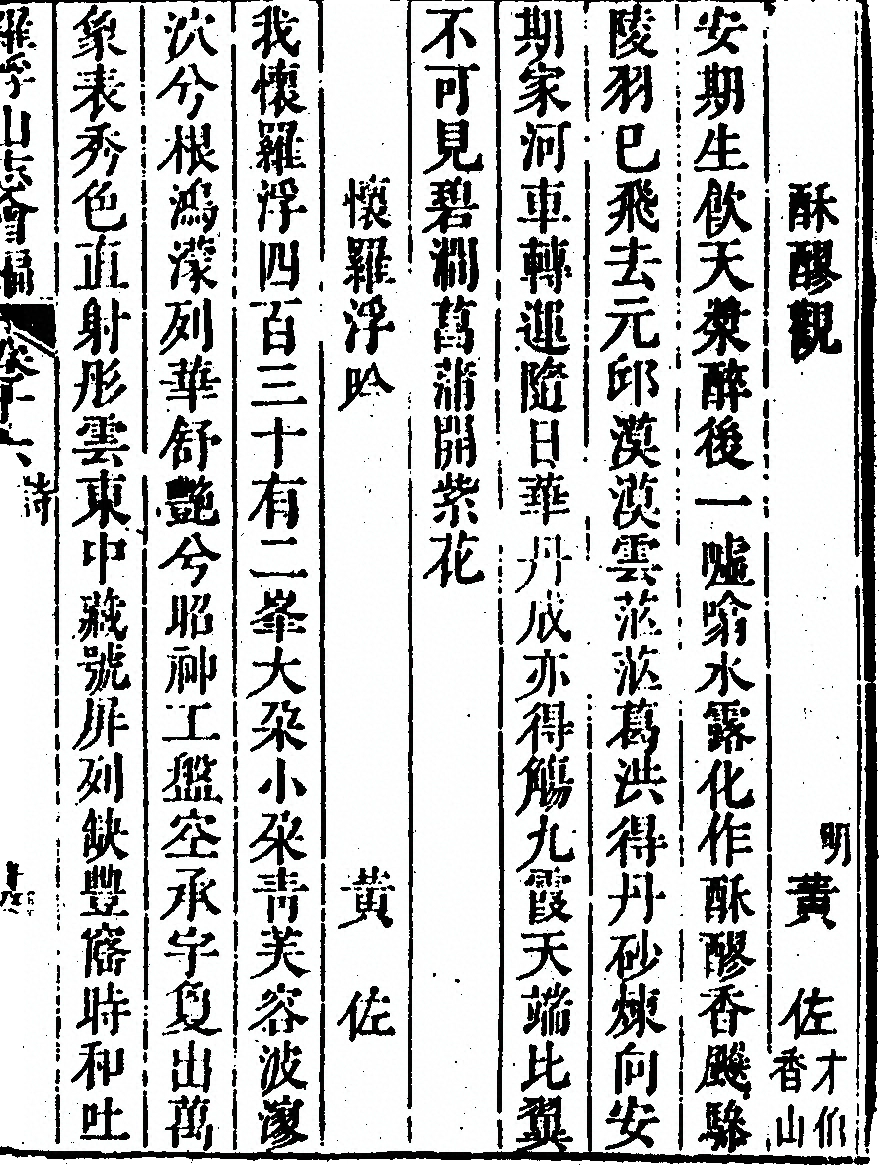 酥醪觀 明黃佐才伯香山
安期生飲天漿醉後一噓噏水露化作酥醪香颷駱
陵羽已飛去元邱漠漠雲茫茫葛洪得丹砂煉向安
期家河車轉運隨日華丹成亦得觴九霞天端比翼
不可見碧澗菖蒲開紫花
懷羅浮吟 黃佐
我懷羅浮四百三十有二峯大朶小朶青芙容波濛
沉兮根鴻濛列華舒艷兮昭神工盤空承宇夏出萬
象表秀色直射彤雲東中藏號屏列缺豐窿時和吐
羅浮山志會編 卷十六 詩